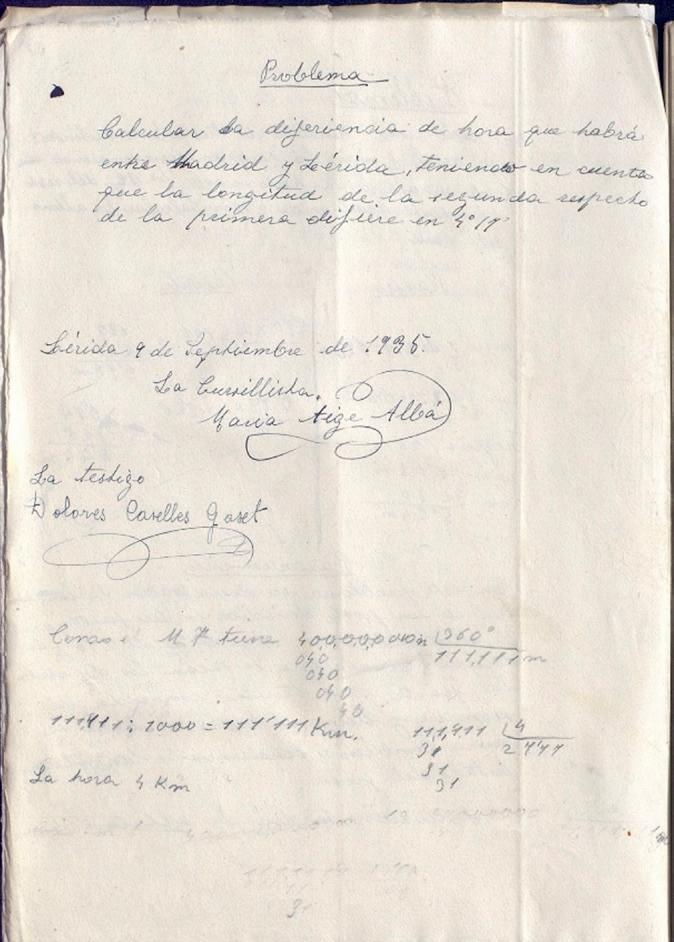 Problema
Calcular la diferiencia de hora que habrá
entre Madrid y Lérida, teniendo en cuenta
que la longitud de la segunda respecto
de la primera difiere en 4º 17'
Lérida 9 de Septiembre de 1935.
La Cursillista,
Maria Tigé Albá
La testigo
Dolores Caselles Gaset
40,0,0,0,0,00m 360º
040 111,111 m
040
040
40
111,111 : 1000 = 111'111 Km. 111,111 4
31 2
31
31
La hora 4 Km